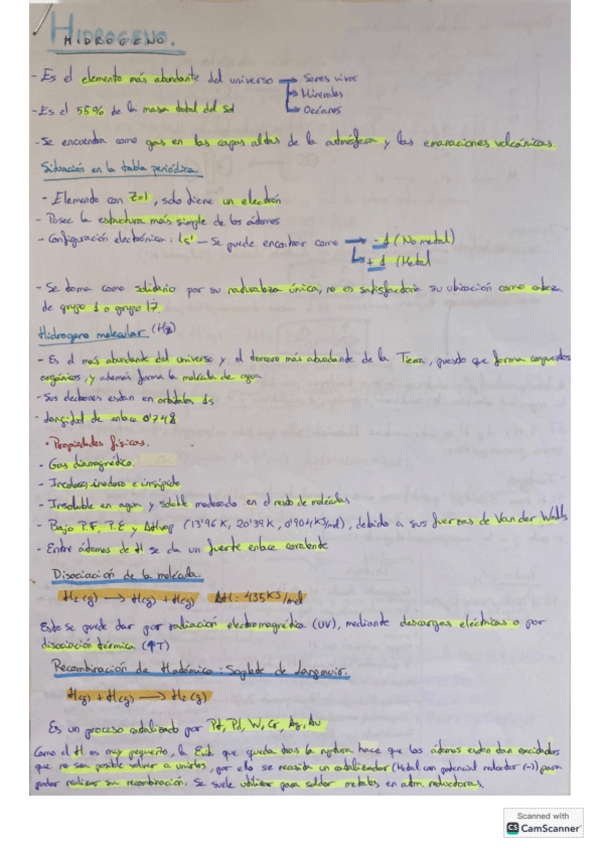 HIDROGENO.
- Es el elemento más abundante del universo → Seres vivos
→ Minerales
- Es el 55% de la masa total del Sol → Océanos
- Se encuentra como gas en las capas altas de la atmósfera y las emanaciones volcánicas.
Situación en la tabla periódica.
- Elemento con Z=1, solo tiene un electrón
- Posee la estructura más simple de los átomos
- Configuración electrónica: 1s¹ - Se puede encontrar como → -1 (No metal)
→ +1 (Metal
- Se toma como solitario por su naturaleza única, no es satisfactoria su ubicación como cabeza
de grupo 1 o grupo 17.
Hidrogeno molecular (H₂)
- Es el más abundante del universo y el tercero más abundante de la Tierra, puesto que forma compuestos
orgánicos, y además forma la molécula de agua
- Sus electrones están en orbitales 1s
- Longitud de enlace 0'74
• Propiedades físicas.
- Gas diamagnético.
- Incoloro, inodoro e insípido
- Insoluble en agua y soluble moderado en el resto de moléculas
- Bajo P.F, P.E y ΔHvap (13'96 K, 20'39 K, 0'904 KJ/mol), debido a sus fuerzas de Van der Walls
- Entre átomos de H se da un fuerte enlace covalente
Disociación de la molécula.
H₂(g) → H(g) + H(g) ΔH: 435 KJ/mol
Esto se puede dar por radiación electromagnética (UV), mediante descargas eléctricas o por
disociación térmica (↑T)
Recombinación de H atómico: Soplete de Langmuir.
H(g) + H(g) → H₂(g)
Es un proceso catalizado por Pt, Pd, W, Cr, Ag, Au
Como el H es muy pequeño, la que queda tras la ruptura hace que los átomos estén tan excitados
que no sea posible volver a unirlos, por ello se necesita un catalizador (Metal con potencial reductor (-)) para
poder realizar su recombinación. Se suele utilizar para soldar metales en atm. reductoras.
Scanned with
CS CamScanner